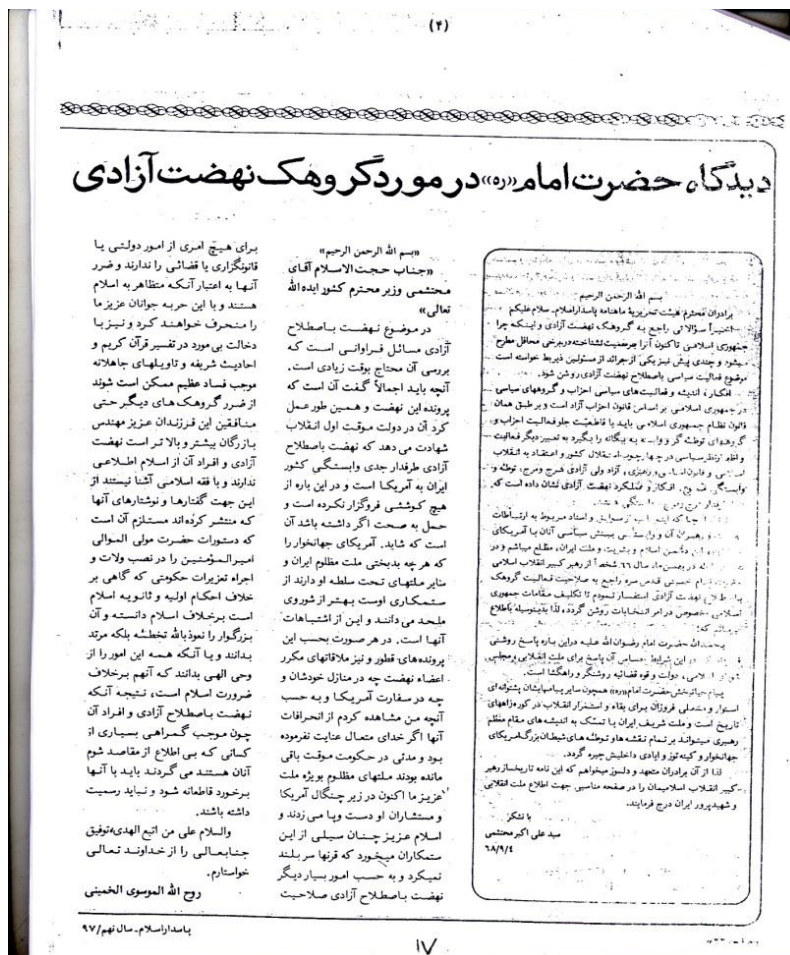 (۴)
دیدگاه حضرت امام «ره» در مورد گروهک نهضت آزادی
بسم الله الرحمن الرحیم
برادران محترم هیئت تحریریهٔ ماهنامه پاسدار اسلام. سلام علیکم
اخیراً سؤالاتی راجع به گروهک نهضت آزادی و اینکه چرا
جمهوری اسلامی تاکنون آنرا برسمیت نشناخته در برخی محافل مطرح
میشود و چندی پیش نیز یکی از جرائد از مسئولین ذیربط خواسته است
موضوع فعالیت سیاسی باصطلاح نهضت آزادی روشن شود.
افکار، اندیشه و فعالیت‌های سیاسی احزاب و گروههای سیاسی
در جمهوری اسلامی بر اساس قانون احزاب آزاد است و بر طبق همان
قانون نظام جمهوری اسلامی باید با قاطعیت جلو فعالیت احزاب و
گروههای توطئه گر و وابسته به بیگانه را بگیرد به تعبیر دیگر فعالیت
و اظهار نظر سیاسی در چهارچوب استقلال کشور و اعتقاد به انقلاب
اسلامی و قانون اساسی و رهبری، آزاد ولی آزادی هرج و مرج، توطئه و
وابستگی ممنوع. افکار و عملکرد نهضت آزادی نشان داده است که
وابستگی هستند.
از آنجا که اینجانب از سوابق و اسناد مربوط به ارتباطات
رهبران آن و وابستگی بینش سیاسی آنان با آمریکای
این دشمن اسلام و بشریت و ملت ایران، مطلع میباشم و در
بهمن ماه سال ۶۶ شخصاً از رهبر کبیر انقلاب اسلامی
امام خمینی قدس سره راجع به صلاحیت فعالیت گروهک
باصطلاح نهضت آزادی استفسار نمودم تا تکلیف مقامات جمهوری
اسلامی بخصوص در امر انتخابات روشن گردد، لذا بدینوسیله باطلاع
میرسانم که:
بحمدالله حضرت امام رضوان الله علیه در این باره پاسخ روشنی
در این شرایط حساس آن پاسخ برای ملت انقلابی و مجلس
اسلامی، دولت و قوه قضائیه روشنگر و راهگشا است.
پیام حیاتبخش حضرت امام «ره» همچون سایر پیامهایشان پشتوانه‌ای
استوار و مشعلی فروزان برای بقاء و استمرار انقلاب در کوره راههای
تاریخ است و ملت شریف ایران با تمسک به اندیشه های مقام معظم
رهبری میتواند بر تمام نقشه ها و توطئه های شیطان بزرگ امریکای
جهانخوار و کینه توز و ایادی داخلیش چیره گردد.
لذا از آن برادران متعهد و دلسوز میخواهم که این نامه تاریخساز رهبر
کبیر انقلاب اسلامیمان را در صفحه مناسبی جهت اطلاع ملت انقلابی
و شهیدپرور ایران درج فرمایند.
با تشکر
سید علی اکبر محتشمی
۶۸/۹/۴
«بسم الله الرحمن الرحیم»
«جناب حجت الاسلام آقای
محتشمی وزیر محترم کشور ایده الله
تعالی»
در موضوع نهضت باصطلاح
آزادی مسائل فراوانی است که
بررسی آن محتاج بوقت زیادی است.
آنچه باید اجمالاً گفت آن است که
پرونده این نهضت و همین طور عمل
کرد آن در دولت موقت اول انقلاب
شهادت می دهد که نهضت باصطلاح
آزادی طرفدار جدی وابستگی کشور
ایران به آمریکا است و در این باره از
هیچ کوششی فروگزار نکرده است و
حمل به صحت اگر داشته باشد آن
است که شاید، آمریکای جهانخوار را
که هر چه بدبختی ملت مظلوم ایران و
سایر ملتهای تحت سلطه او دارند از
ستمکاری اوست بهتر از شوروی
ملحد می دانند و این از اشتباهات
آنها است. در هر صورت بحسب این
پرونده‌های قطور و نیز ملاقاتهای مکرر
اعضاء نهضت چه در منازل خودشان و
چه در سفارت آمریکا و به حسب
آنچه من مشاهده کردم از انحرافات
آنها اگر خدای متعال عنایت نفرموده
بود و مدتی در حکومت موقت باقی
مانده بودند ملتهای مظلوم بویژه ملت
عزیز ما اکنون در زیر چنگال آمریکا
و مستشاران او دست و پا می زدند و
اسلام عزیز چنان سیلی از این
ستمکاران میخورد که قرنها سر بلند
نمیکرد و به حسب امور بسیار دیگر
نهضت باصطلاح آزادی صلاحیت
برای هیچ امری از امور دولتی یا
قانونگزاری یا قضائی را ندارند و ضرر
آنها به اعتبار آنکه متظاهر به اسلام
هستند و با این حربه جوانان عزیز ما
را منحرف خواهند کرد و نیز با
دخالت بی مورد در تفسیر قرآن کریم و
احادیث شریفه و تاویلهای جاهلانه
موجب فساد عظیم ممکن است شوند
از ضرر گروهک های دیگر حتی
منافقین این فرزندان عزیز مهندس
بازرگان بیشتر و بالاتر است نهضت
آزادی و افراد آن از اسلام اطلاعی
ندارند و با فقه اسلامی آشنا نیستند از
این جهت گفتارها و نوشتارهای آنها
که منتشر کرده‌اند مستلزم آن است
که دستورات حضرت مولی الموالی
امیرالمؤمنین را در نصب ولات و
اجراء تعزیرات حکومتی که گاهی بر
خلاف احکام اولیه و ثانویه اسلام
است برخلاف اسلام دانسته و آن
بزرگوار را نعوذبالله تخطئه بلکه مرتد
بدانند و یا آنکه همه این امور را از
وحی الهی بدانند که آنهم برخلاف
ضرورت اسلام است، نتیجه آنکه
نهضت باصطلاح آزادی و افراد آن
چون موجب گمراهی بسیاری از
کسانی که بی اطلاع از مقاصد شوم
آنان هستند می گردند باید با آنها
برخورد قاطعانه شود و نباید رسمیت
داشته باشند.
والسلام علی من اتبع الهدی، توفیق
جنابعالی را از خداوند تعالی
خواستارم.
روح الله الموسوی الخمینی
پاسدار اسلام ـ سال نهم/۹۷
۱۷